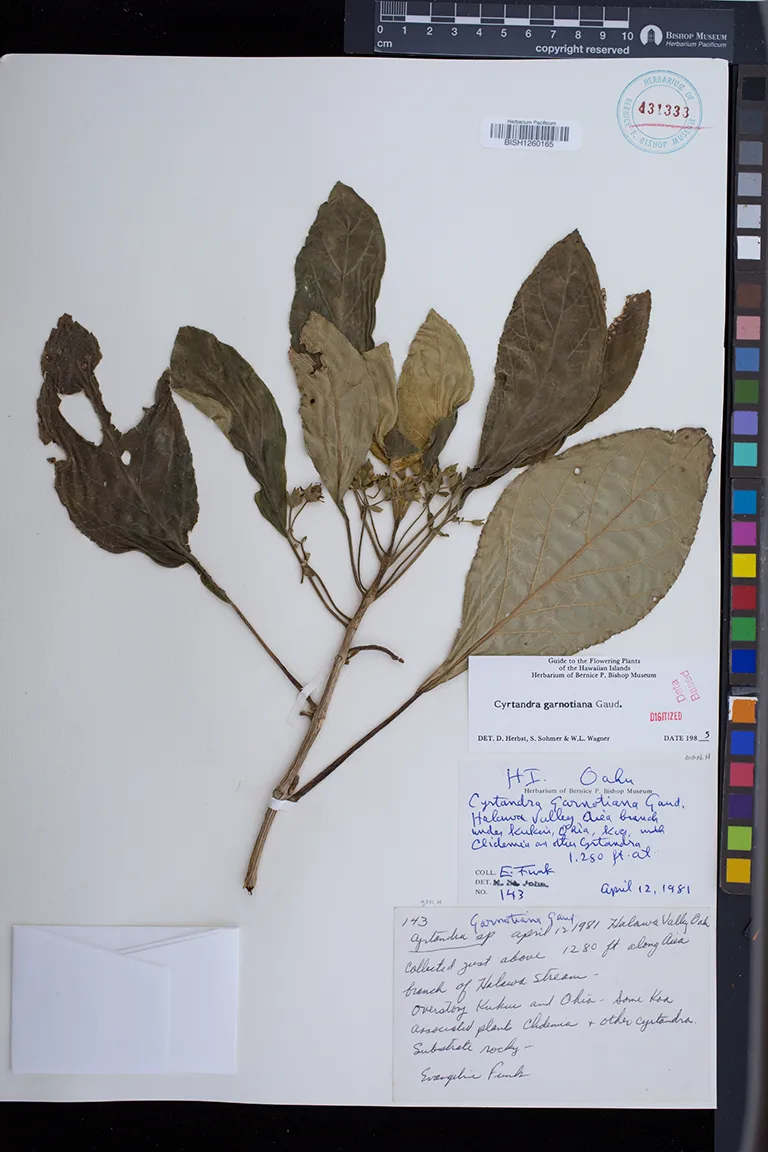 0 1 2 3 4 5 6 7 8 9 10
cm
copyright reserved
BISHOP MUSEUM
Herbarium Pacificum
HERBARIUM OF
BERNICE P. BISHOP MUSEUM
431333
Herbarium Pacificum
BISH1260165
Guide to the Flowering Plants
of the Hawaiian Islands
Herbarium of Bernice P. Bishop Museum
Cyrtandra garnotiana Gaud.
Data Based
DIGITIZED
DET. D. Herbst, S. Sohmer & W.L. Wagner DATE 198 5
HI. Oahu
Herbarium of Bernice P. Bishop Museum
Cyrtandra Garnotiana Gaud.
Halawa Valley Aiea branch
under Kukui, Ohia, Koa, with
Clidemia as other Cyrtandra
1,280 ft. at
COLL. E. Funk
DET. H. St. John
NO. 143 April 12, 1981
143 Garnotiana Gaud.
Cyrtandra sp April 12 1981 Halawa Valley Oah
Collected just above 1280 ft along Aiea
branch of Halawa Stream -
Overstory Kukui and Ohia - Some Koa
associated plants Clidemia + other cyrtandra.
Substrate rocky -
Evangeline Funk